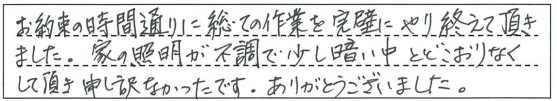 お約束の時間通りに総ての作業を完璧にやり終えて頂き
ました。家の照明が不調で少し暗い中とどこおりなく
して頂き申し訳なかったです。ありがとうございました。